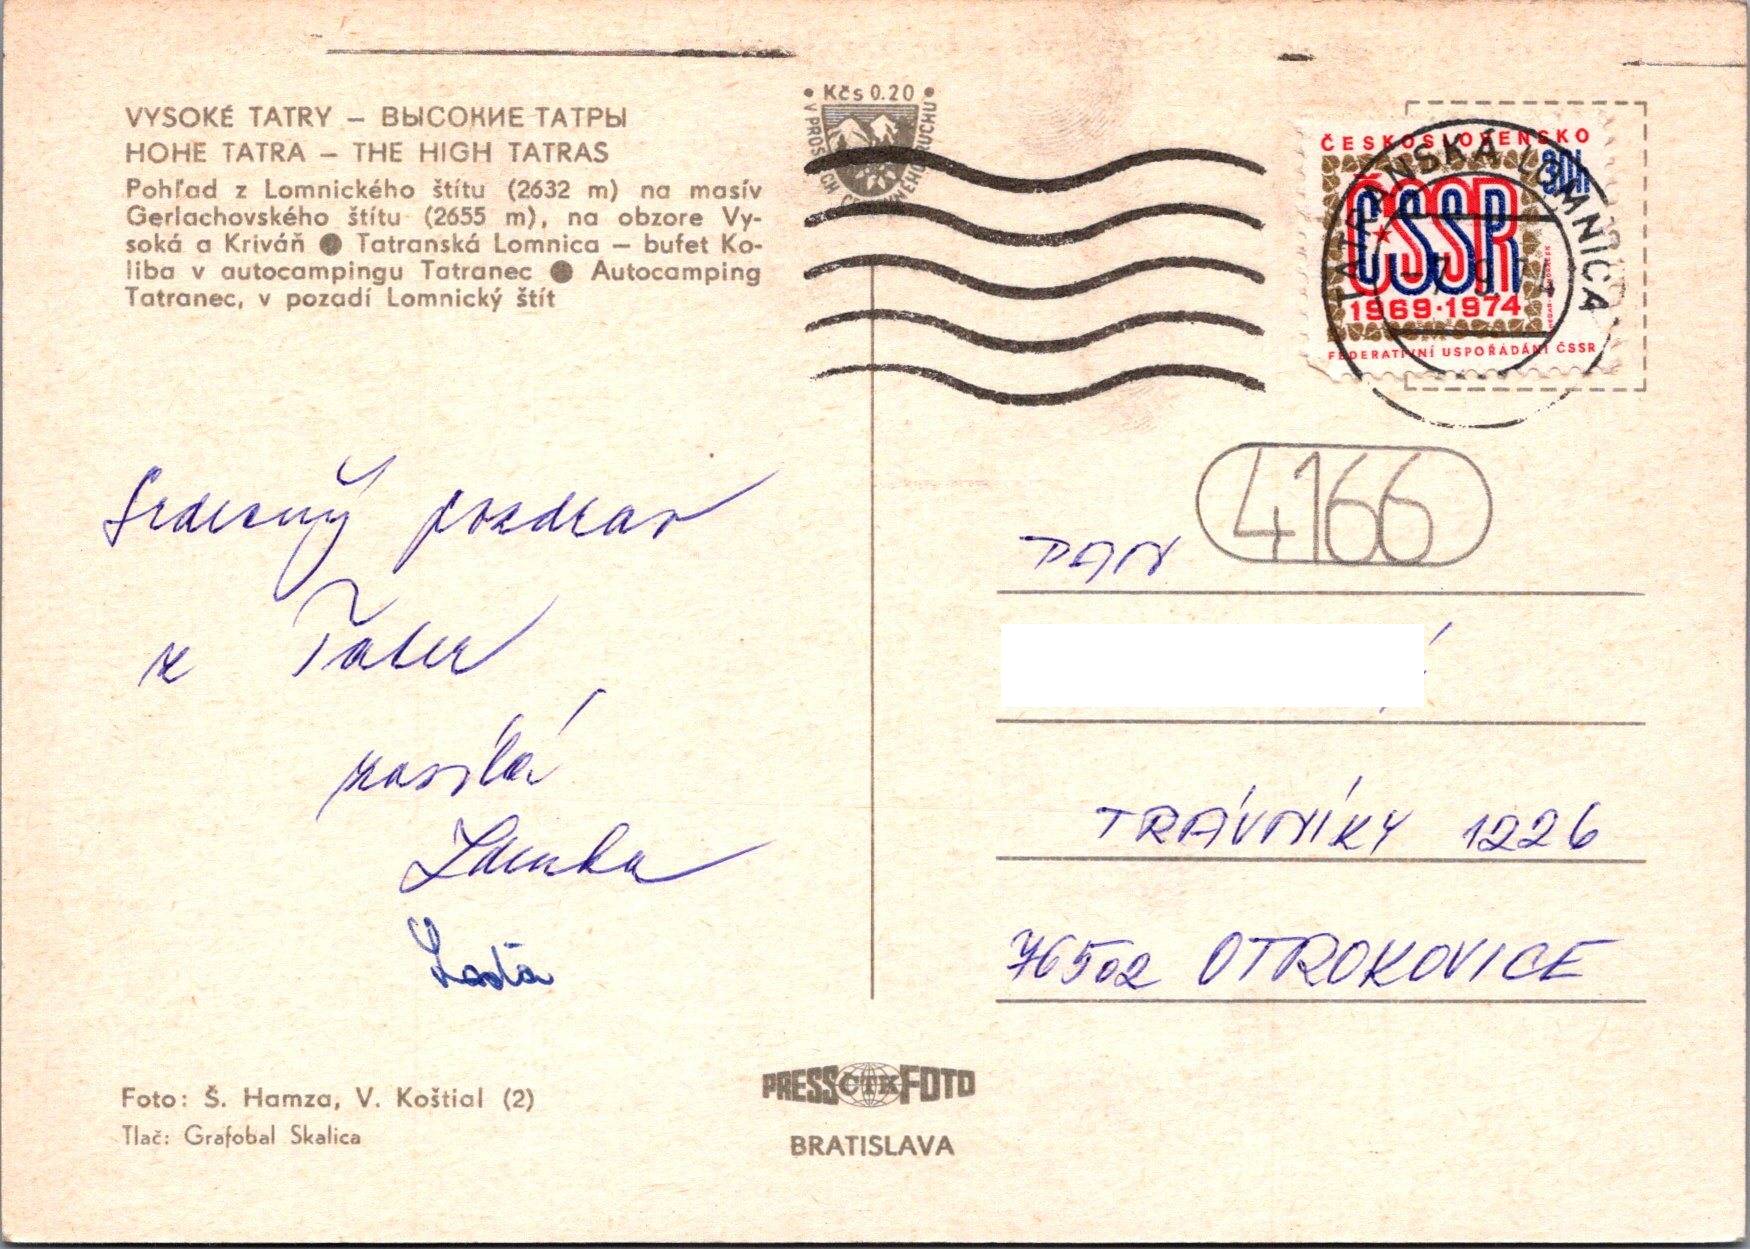 VYSOKÉ TATRY – ВЫСОКИЕ ТАТРЫ
HOHE TATRA – THE HIGH TATRAS
Pohľad z Lomnického štítu (2632 m) na masív
Gerlachovského štítu (2655 m), na obzore Vy-
soká a Kriváň ● Tatranská Lomnica – bufet Ko-
liba v autocampingu Tatranec ● Autocamping
Tatranec, v pozadí Lomnický štít
• Kčs 0.20 •
V PROSPECH CESTOVNÉHO RUCHU
ČESKOSLOVENSKO
30h
ČSSR
1969·1974
FEDERATIVNÍ USPOŘÁDÁNÍ ČSSR
TATRANSKÁ LOMNICA
-7.9.74
4166
Srdečný pozdrav
z Tater
zasílá
Zdenka
Lada
PAN
TRÁVNÍKY 1226
76502 OTROKOVICE
Foto: Š. Hamza, V. Koštial (2)
Tlač: Grafobal Skalica
PRESS ČTK FOTO
BRATISLAVA